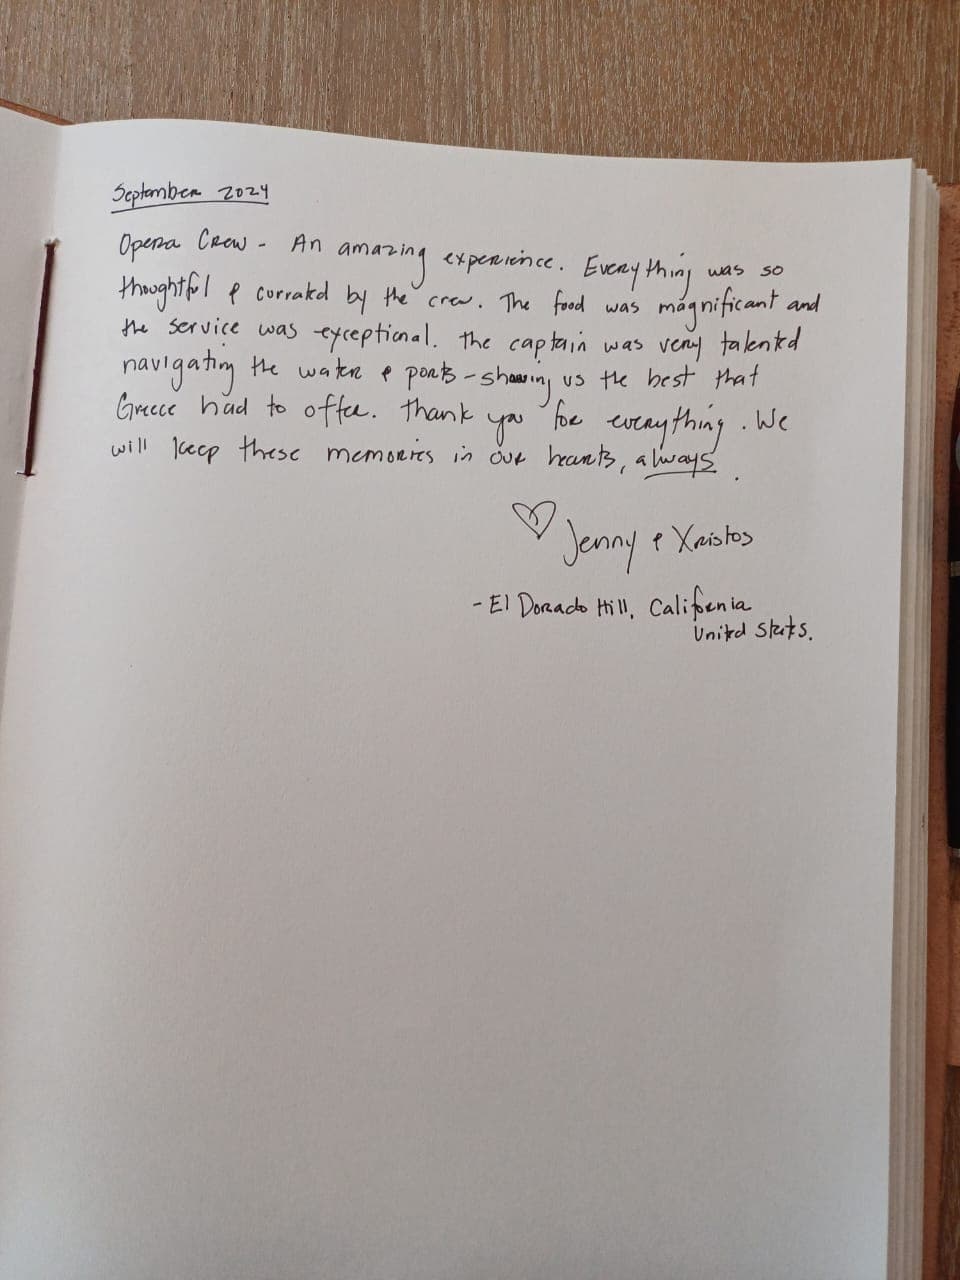 September 2024
Opera Crew - An amazing experience. Everything was so
thoughtful & currated by the crew. The food was magnificant and
the service was exceptional. The captain was very talented
navigating the water & ports - showing us the best that
Greece had to offer. Thank you for everything. We
will keep these memories in our hearts, always.
♡ Jenny & Xristos
- El Dorado Hill, California
United States.